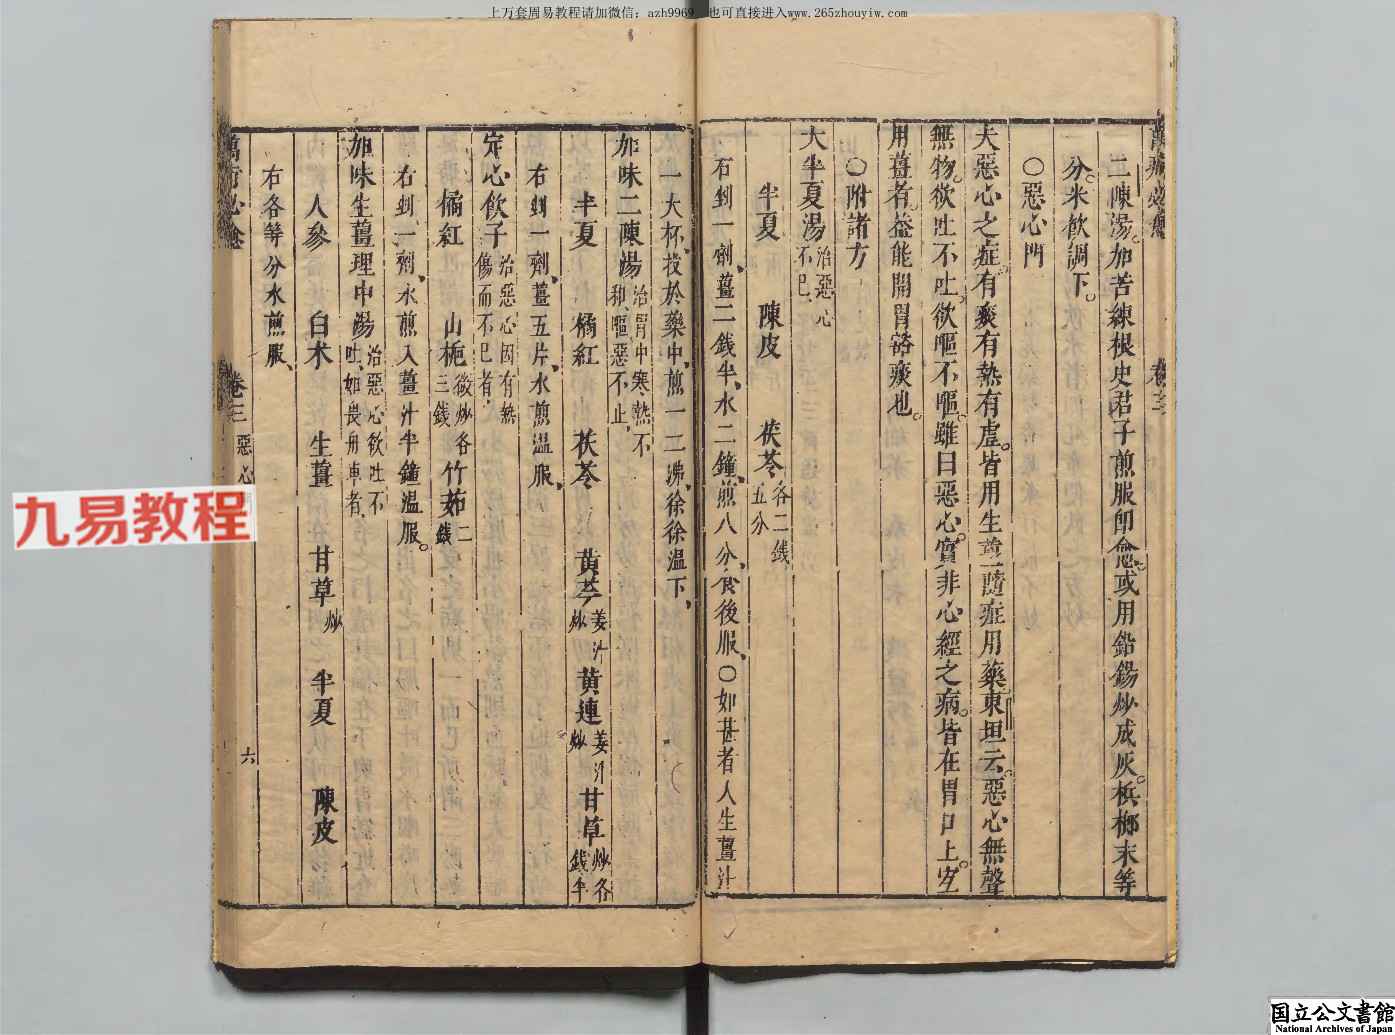 上万套周易教程请加微信：azh9969，也可直接进入www.265zhouyiw.com
二陳湯。加苦練根史君子煎服卽愈。或用鉛錫炒成灰。檳榔末等
分。米飲調下。
○惡心門
夫惡心之症。有痰有熱有虛。皆用生薑。隨症用藥東垣云。惡心無聲
無物。欲吐不吐。欲嘔不嘔。雖曰惡心。實非心經之病。皆在胃口上。宜
用薑者。益能開胃豁痰也。
○附諸方
大半夏湯 治惡心不已、
半夏 陳皮 茯苓 各二錢五分
右剉一劑、薑二錢半、水二鐘、煎八分、食後服、○如甚者人生薑汁
一大杯、投於藥中、煎一二沸、徐徐温下、
加味二陳湯 治胃中寒熱不和、嘔惡不止、
半夏 橘紅 茯苓 黄芩 姜汁炒 黄連 姜汁炒 甘草 炒各錢半
右剉一劑、薑五片、水煎温服、
定心飲子 治惡心因有熱傷而不已者、
橘紅 山梔 微炒各三錢 竹茹 二錢
右剉一劑、水煎入薑汁半鐘温服。
加味生薑理中湯 治惡心飲吐不吐、如畏舟車者、
人參 白术 生薑 甘草 炒 半夏 陳皮
右各等分水煎服、
卷三 惡心
六
九易教程
国立公文書館
National Archives of Japan